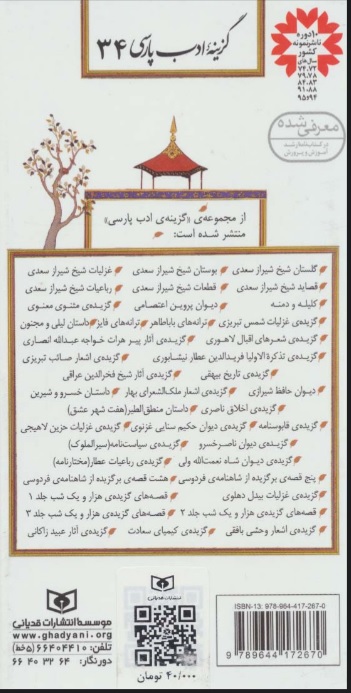 گزینهٔ ادب پارسی ۳۴
۱۰ دوره
ناشر نمونه
کشور
سال‌های
۷۴.۷۲
۷۹.۷۸
۸۴.۸۳
۹۱.۸۸
۹۵و۹۴
معرفی شده
در کتاب‌نامه رشد
آموزش و پرورش
از مجموعه‌ی «گزینه‌ی ادب پارسی»
منتشر شده است:
گلستان شیخ شیراز سعدی بوستان شیخ شیراز سعدی غزلیات شیخ شیراز سعدی
قصاید شیخ شیراز سعدی قطعات شیخ شیراز سعدی رباعیات شیخ شیراز سعدی
کلیله و دمنه دیوان پروین اعتصامی گزیده‌ی مثنوی معنوی
گزیده‌ی غزلیات شمس تبریزی ترانه‌های باباطاهر ترانه‌های فایز داستان لیلی و مجنون
گزیده‌ی شعرهای اقبال لاهوری گزیده‌ی آثار پیر هرات خواجه عبدالله انصاری
گزیده‌ی تذکرةالاولیا فریدالدین عطار نیشابوری گزیده‌ی اشعار صائب تبریزی
گزیده‌ی تاریخ بیهقی گزیده‌ی آثار شیخ فخرالدین عراقی
دیوان حافظ شیرازی گزیده‌ی اشعار ملک‌الشعرای بهار داستان خسرو و شیرین
گزیده‌ی اخلاق ناصری داستان منطق‌الطیر(هفت شهر عشق)
گزیده‌ی قابوسنامه گزیده‌ی دیوان حکیم سنایی غزنوی گزیده‌ی غزلیات حزین لاهیجی
گزیده‌ی دیوان ناصرخسرو گزیده‌ی سیاست‌نامه(سیرالملوک)
گزیده‌ی دیوان شاه نعمت‌الله ولی گزیده‌ی رباعیات عطار(مختارنامه)
پنج قصه‌ی برگزیده از شاهنامه‌ی فردوسی هشت قصه‌ی برگزیده از شاهنامه‌ی فردوسی
گزیده‌ی غزلیات بیدل دهلوی قصه‌های گزیده‌ی هزار و یک شب جلد ۱
قصه‌های گزیده‌ی هزار و یک شب جلد ۲ قصه‌های گزیده‌ی هزار و یک شب جلد ۳
گزیده‌ی اشعار وحشی بافقی گزیده‌ی کیمیای سعادت گزیده‌ی آثار عبید زاکانی
موسسه انتشارات قدیانی
www.ghadyani.org
تلفن: ۶۶۴۰۴۴۱۰ (۵خط)
دورنگار: ۶۶۴۰۳۲۶۴
انتشارات قدیانی
۴۰/۰۰۰ تومان
ISBN-13: 978-964-417-267-0
9 789644 172670